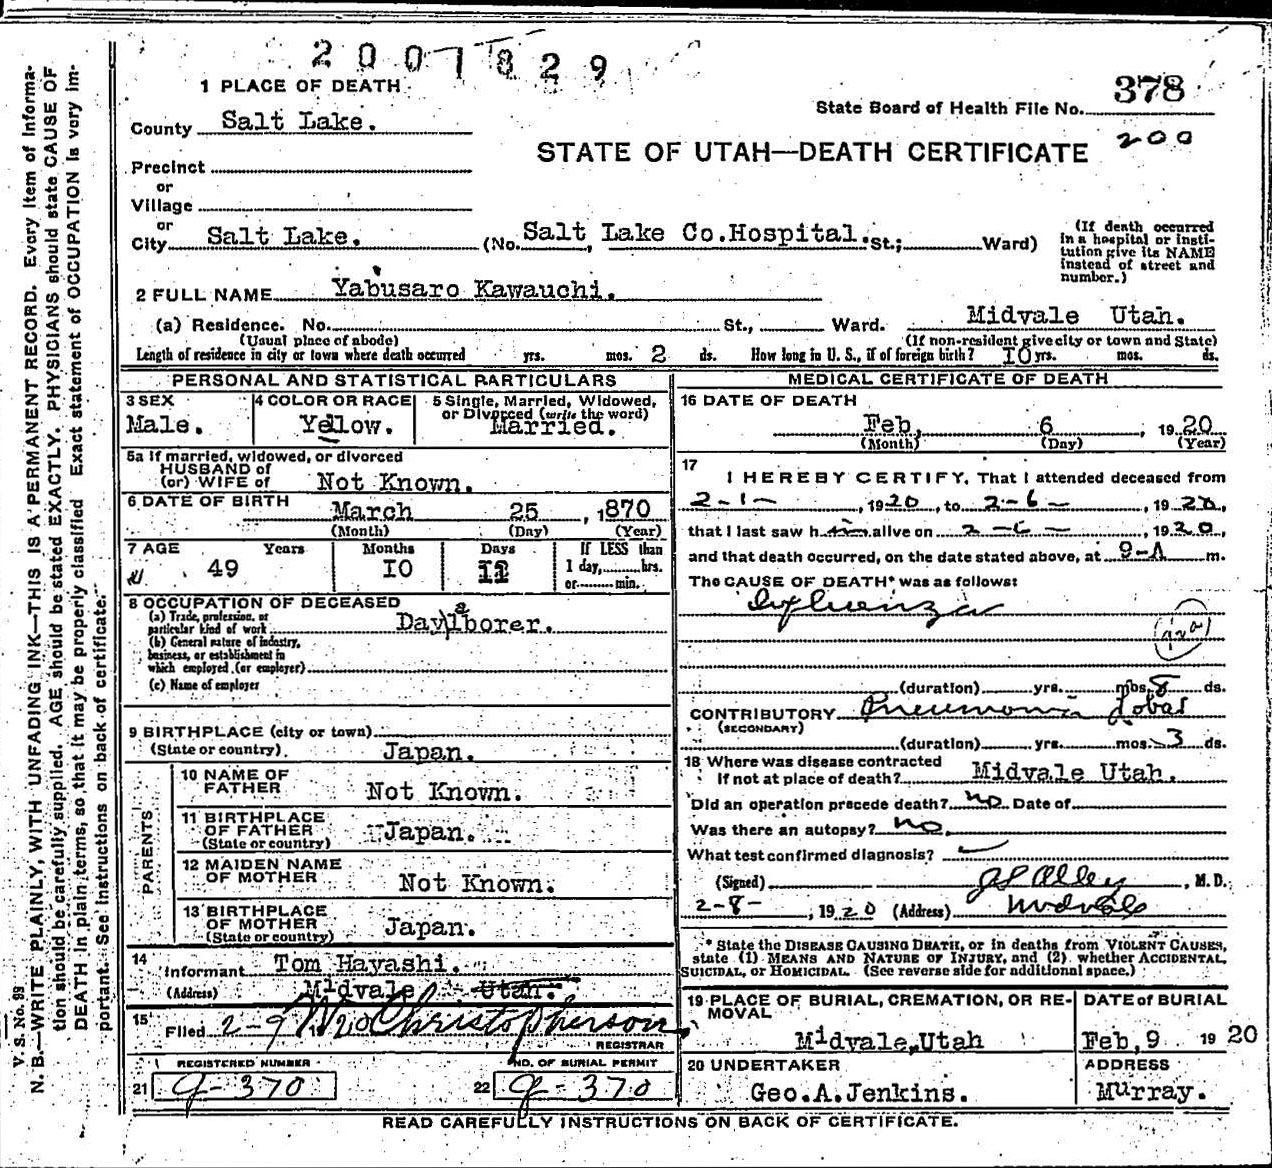 2001829
1 PLACE OF DEATH
State Board of Health File No. 378
County Salt Lake.
200
STATE OF UTAH—DEATH CERTIFICATE
Precinct
or
Village
or
City Salt Lake. (No. Salt Lake Co.Hospital. St.; Ward)
(If death occurred in a hospital or institution give its NAME instead of street and number.)
2 FULL NAME Yabusaro Kawauchi.
(a) Residence. No. St., Ward. Midvale Utah.
(Usual place of abode) (If non-resident give city or town and State)
Length of residence in city or town where death occurred yrs. mos. 2 ds. How long in U. S., if of foreign birth? IO yrs. mos. ds.
PERSONAL AND STATISTICAL PARTICULARS
3 SEX
Male.
4 COLOR OR RACE
Yellow.
5 Single, Married, Widowed, or Divorced (write the word)
Married.
5a If married, widowed, or divorced
HUSBAND of
(or) WIFE of Not Known.
6 DATE OF BIRTH
March 25, 1870
(Month) (Day) (Year)
7 AGE Years Months Days If LESS than
49 IO 12 1 day, hrs.
or min.
8 OCCUPATION OF DECEASED
(a) Trade, profession, or particular kind of work Day laborer.
(b) General nature of industry, business, or establishment in which employed (or employer)
(c) Name of employer
9 BIRTHPLACE (city or town)
(State or country) Japan.
PARENTS
10 NAME OF FATHER Not Known.
11 BIRTHPLACE OF FATHER (State or country) Japan.
12 MAIDEN NAME OF MOTHER Not Known.
13 BIRTHPLACE OF MOTHER (State or country) Japan.
14
Informant Tom Hayashi.
(Address) Midvale Utah.
15 Filed 2-9 Christopherson
REGISTRAR
REGISTERED NUMBER NO. OF BURIAL PERMIT
21 g-370 22 g-370
MEDICAL CERTIFICATE OF DEATH
16 DATE OF DEATH
Feb, 6, 1920
(Month) (Day) (Year)
17
I HEREBY CERTIFY, That I attended deceased from
2-1-, 1920, to 2-6-, 1920,
that I last saw him alive on 2-6-, 1920,
and that death occurred, on the date stated above, at 9-A m.
The CAUSE OF DEATH* was as follows:
Influenza
(duration) yrs. mos. 8 ds.
CONTRIBUTORY Pneumonia Lobar
(SECONDARY)
(duration) yrs. mos. 3 ds.
18 Where was disease contracted
If not at place of death? Midvale Utah.
Did an operation precede death? no Date of
Was there an autopsy? no.
What test confirmed diagnosis?
(Signed) Alley, M.D.
2-8-, 1920 (Address) Midvale
* State the DISEASE CAUSING DEATH, or in deaths from VIOLENT CAUSES,
state (1) MEANS AND NATURE OF INJURY, and (2) whether ACCIDENTAL,
SUICIDAL, or HOMICIDAL. (See reverse side for additional space.)
19 PLACE OF BURIAL, CREMATION, OR REMOVAL
Midvale, Utah
DATE of BURIAL
Feb, 9 1920
20 UNDERTAKER
Geo.A.Jenkins.
ADDRESS
Murray.
READ CAREFULLY INSTRUCTIONS ON BACK OF CERTIFICATE.
V. S. No. 99
N. B.—WRITE PLAINLY, WITH UNFADING INK—THIS IS A PERMANENT RECORD. Every item of informa-
tion should be carefully supplied. AGE should be stated EXACTLY. PHYSICIANS should state CAUSE OF
DEATH in plain terms, so that it may be properly classified Exact statement of OCCUPATION is very im-
portant. See instructions on back of certificate.